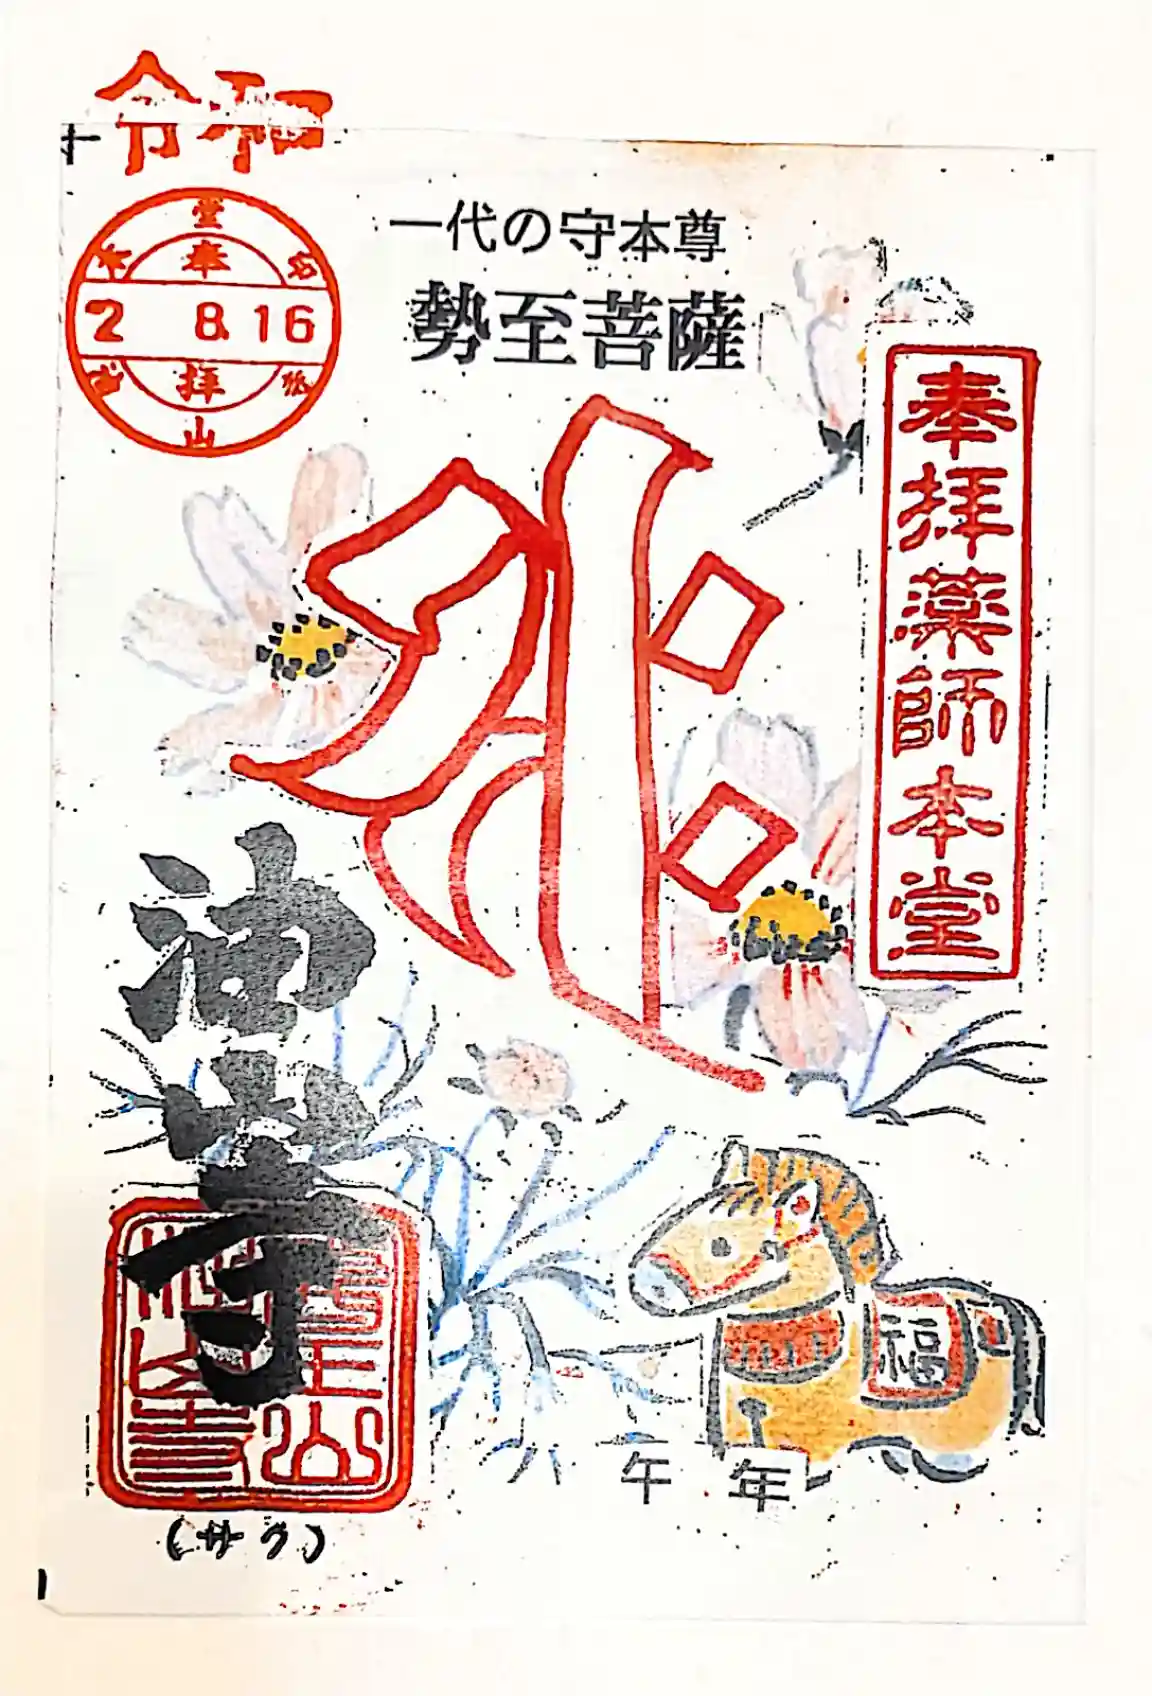 令和
2 8.16
奉拝
一代の守本尊
勢至菩薩
奉拝薬師本堂
油山寺
福
午年
(サク)